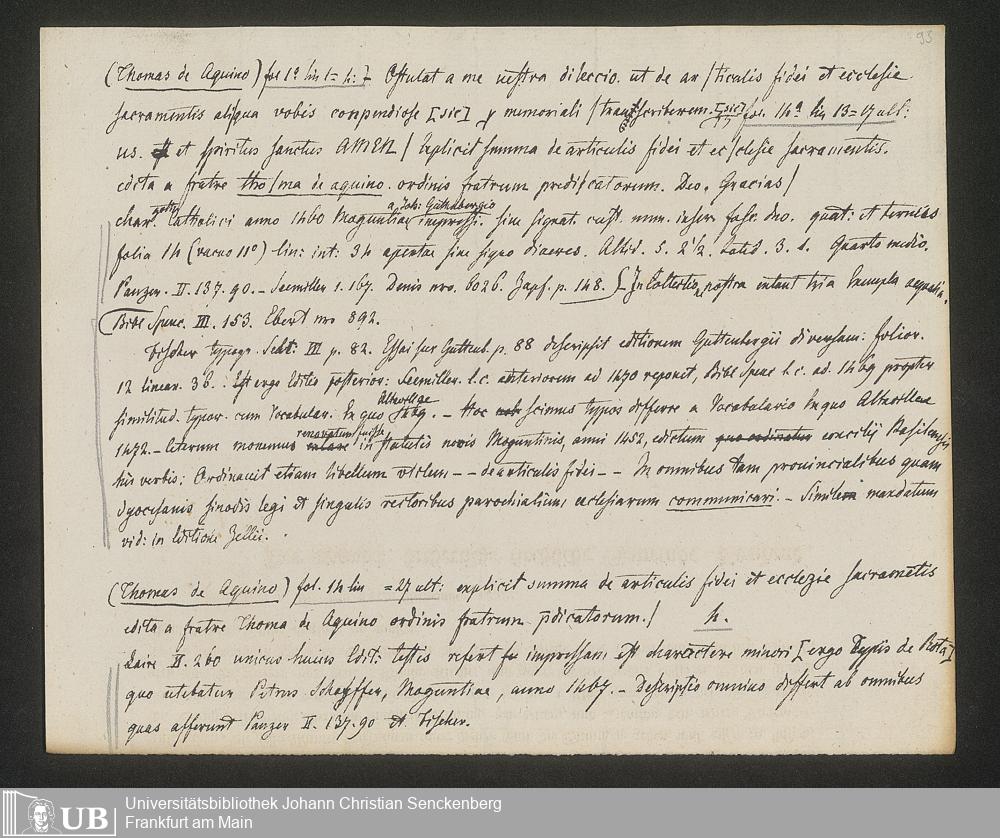 93
(Thomas de Aquino) fol 1ᵃ lin 1= 4: Ostulat a me uestra dileccio. ut de ar/ticulis fidei et ecclesie
sacramentis aliqua vobis conpendiose [sic] p memoriali /transscriberem. [sic] fol. 14ᵃ lin 13=17 ult:
us. et spiritus sanctus AMEN / Explicit summa de articulis fidei et ec/clesie sacramentis.
edita a fratre tho/ma de aquino. ordinis fratrum predi/catorum. Deo. Gracias /
char. gothi Catholici anno 1460 Maguntiae a Joh: Guttenbergio impressi. sine signat. cust. num. inser. fasc. duo. quat: et ternias
folia 14 (vacuo 11°) lin: int: 34 apertae sine signo diaeres. Altid. 5. 2 1/2. Latid. 3. 1. Quarto medio.
Panzer. II. 137. 90. – Seemiller 1. 167. Denis nro. 6026. Zapf. p. 148. In Collectione nostra extant tria Exempla aequalia.
Bibl Spenc. III. 153. Ebert nro 892.
Fischer typogr. Selt. III p. 82. Essai sur Guttenb. p. 88 descripsit editionem Guttenbergii diversam: folior.
12 linear. 36. . Est ergo Editio posterior: Seemiller. l.c. anteriorem ad 1470 reponit, Bibl Spenc l.c. ad. 1469 propter
similitud. typor. cum Vocabular. Ex quo Altavillae 1469. – Hoc scimus typos differre a Vocabulario Ex quo Altavillae
1472. – Iterum monemus renovatum fuisse in statutis novis Moguntinis, anni 1452, edictum concilij Basileensis
his verbis: Ordinauit etiam libellum vtilem – – de articulis fidei – – In omnibus tam prouincialibus quam
dyocesanis sinodis legi et singulis rectoribus parochialium ecclesiarum communicari. – Simile mandatum
vid: in Editione Zellii.
(Thomas de Aquino) fol. 14 lin =27 ult: explicit summa de articulis fidei et ecclezie sacrametis
edita a fratre Thoma de Aquino ordinis fratrum pdicatorum. / 4.
Laire II. 260 unicus huius Edit: testis refert impressam est charactere minori [ergo Typis de Rota]
quo utebatur Petrus Schoyffer, Moguntiae, anno 1467. – Descriptio omnino differt ab omnibus
quas afferunt Panzer II. 137. 90 et Fischer.
UB
Universitätsbibliothek Johann Christian Senckenberg
Frankfurt am Main